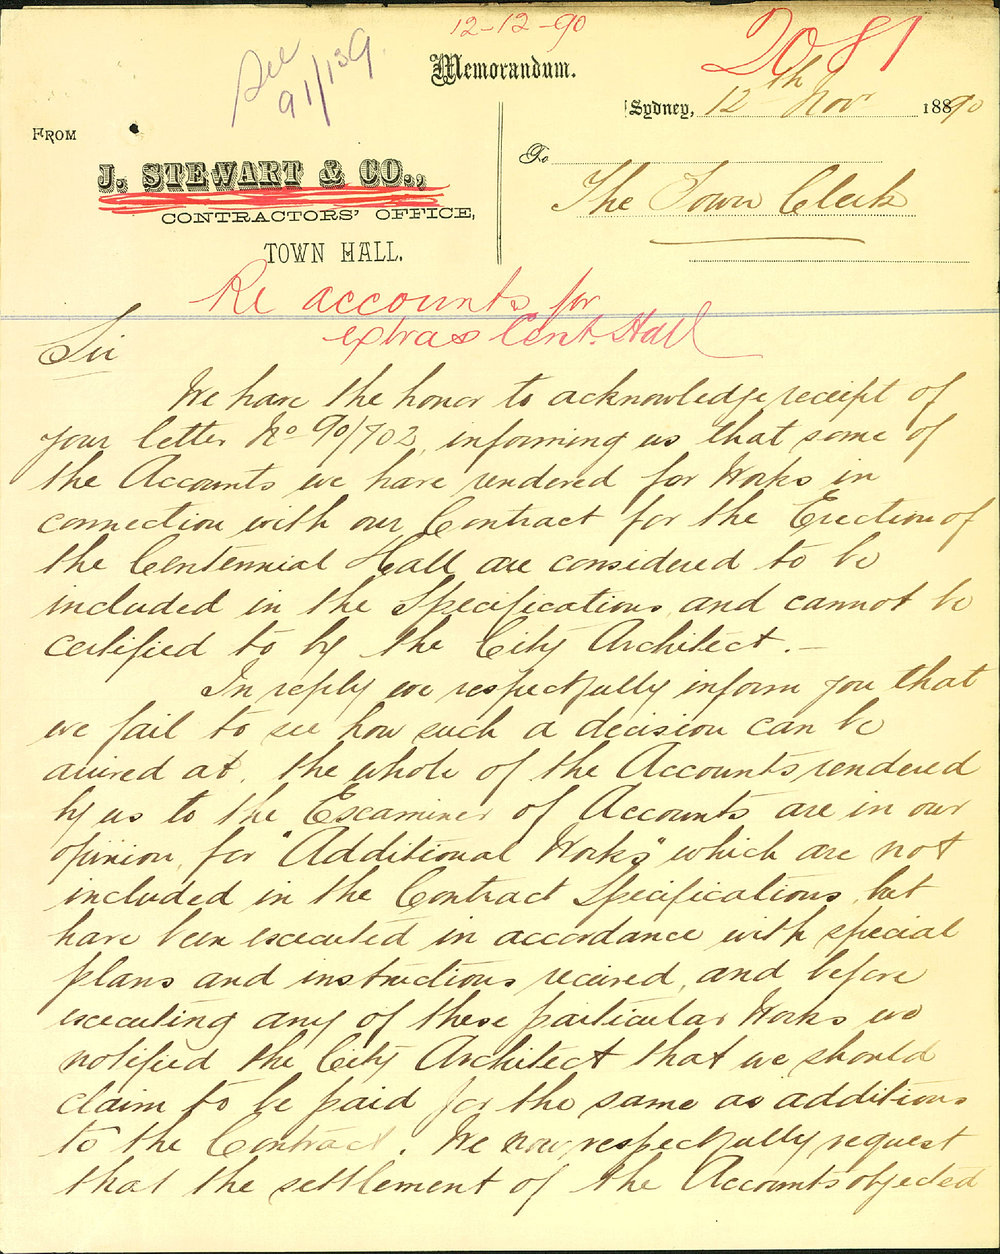 12-12-90
2081
See
91/139
Memorandum.
Sydney, 12th Novr 1890
FROM
To
J. STEWART & CO.,
The Town Clerk
CONTRACTORS' OFFICE,
TOWN HALL.
Re accounts for
extras Cent. Hall
Sir
We have the honor to acknowledge receipt of
your letter No 90/702, informing us that some of
the Accounts we have rendered for Works in
connection with our Contract for the Erection of
the Centennial Hall are considered to be
included in the Specifications, and cannot be
certified to by the City Architect.—
In reply we respectfully inform you that
we fail to see how such a decision can be
arrived at, the whole of the Accounts rendered
by us to the Examiner of Accounts are in our
opinion, for "Additional Works" which are not
included in the Contract Specifications, but
have been executed in accordance with special
plans and instructions received, and before
executing any of these particular Works we
notified the City Architect that we should
claim to be paid for the same as additions
to the Contract. We now respectfully request
that the settlement of the Accounts objected